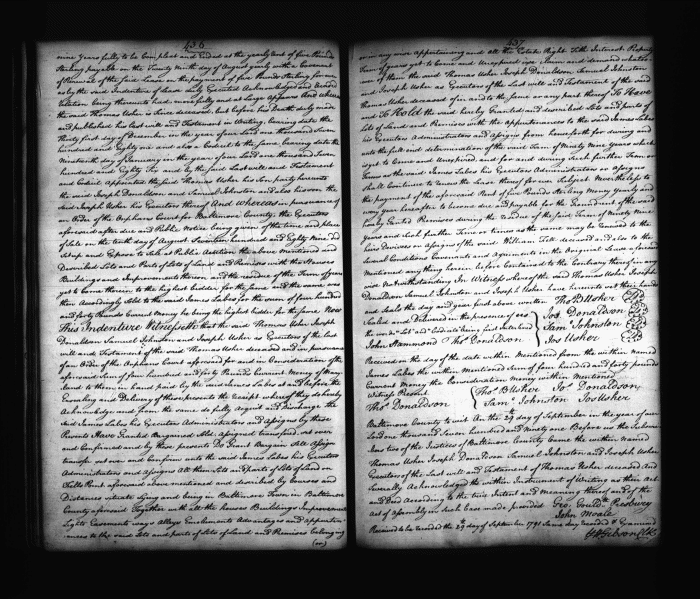 436
nine Years fully to be Compleat and Ended at the yearly Rent of five Pounds
Sterling payable on the Twenty Ninth day of August yearly with a Covenant
of Renewal of the said Lease on the payment of five Pounds Sterling for
as by the said Indenture of Lease duly Executed Acknowledged and
Relation being thereunto had more fully and at Large Appears And Whereas
the said Thomas Usher is since deceased but before his Death duly made
and published his last will and Testament in Writing bearing date the
Thirty first day of December in the year of our Lord one thousand Seven
hundred and Eighty and also a Codicil to the same bearing date the
Nineteenth day of January in the year of our Lord one thousand Seven
hundred and Eighty Six and by the said Last will and Testament
and Codicil Appointed the said Thomas Usher his Son party hereunto
the said Joseph Donaldson and Samuel Johnston and also his son the
said Joseph Usher his Executors thereof And Whereas in pursuance of
an Order of the Orphans Court for Baltimore County the Executors
aforesaid after due and Public Notice being given of the time and place
of Sale on the tenth day of August Seventeen hundred and Eighty Nine did
Set up and Expose to Sale at Public Auction the above mentioned and
Described Lots and Parts of Lots of Land and Premises with the Houses
Buildings and Improvements thereon and the residue of the Term of years
yet to come therein to the highest bidder for the same and the same was
then Accordingly Sold to the said James Labes for the sum of four hundred
and forty Pounds Current Money he being the highest bidder for the same Now
This Indenture Witnesseth that the said Thomas Usher Joseph
Donaldson Samuel Johnston and Joseph Usher as Executors of the last
will and Testament of the said Thomas Usher deceased and in pursuance
of an Order of the Orphans Court aforesaid for and in Consideration of the
aforesaid Sum of four hundred and forty Pounds Current Money of Mary-
land to them in hand paid by the said James Labes at and before the
Ensealing and Delivery of these presents the Receipt whereof they do hereby
Acknowledge and from the same do fully Acquit and Discharge the
said James Labes his Executors Administrators and Assigns by these
Presents Have Granted Bargained Sold Assigned transfered set over
and Confirmed and by these presents Do Grant Bargain Sell Assign
transfer set over and Confirm unto the said James Labes his Executors
Administrators and Assigns All them Lots and parts of Lots of Land on
Fells Point aforesaid above mentioned and described by Courses and
Distances situate Lying and being in Baltimore Town in Baltimore
County aforesaid Together with all the houses Buildings Improvements
Lights Easements ways Alleys Enrollments Advantages and Appurten-
ances to the said Lots and parts of Lots of Land and Premises belonging
(or)
437
or in any wise Appertaining and all the Estate Right Title Interest Property
Term of years yet to Come and Unexpired Claim and demand whatso-
ever of them the said Thomas Usher Joseph Donaldson Samuel Johnston
and Joseph Usher as Executors of the Last will and Testament of the said
Thomas Usher deceased of in and to the same or any part thereof To Have
and To Hold the said hereby Granted and described Lots and parts of
Lots of Land and Premises with the Appurtenances to the said James Labes
his Executors Administrators and Assigns from henceforth for during and
unto the full end and determination of the said Term of Ninety Nine years which
is yet to Come and Unexpired and for and during such further Term or
Terms as the said James Labes his Executors Administrators or Assigns
shall Continue to renew the Lease thereof for Subject Nevertheless to
the payment of the aforesaid Rent of five Pounds Sterling Money yearly and
every year as after to become due and payable for the Ground rent of the said
hereby Granted Premises during the residue of the said Term of Ninety Nine
years and such further Term or times as the same may be renewed to the
heirs Devisees or Assigns of the said William Fell deceased and also to the
several Conditions Covenants and Agreements in the original Lease aforesaid
Mentioned any thing herein before Contained to the Contrary thereof in any
wise Notwithstanding In Witness whereof the said Thomas Usher Joseph
Donaldson Samuel Johnston and Joseph Usher have hereunto set their hands
and Seals the day and year first above written Thos B Usher
Sealed and Delivered in the presence of us Jos Donaldson
the words being first Interlined Saml Johnston
John Hammond Thos Donaldson Jos Usher
Received on the day of the date within Mentioned from the within Named
James Labes the within Mentioned Sum of four hundred and forty pounds
Current Money the Consideration Money within Mentioned
Witness Present Thos B Usher Jos Donaldson
Thos Donaldson Saml Johnston Jos Usher
Baltimore County to wit On the 29th day of September in the year of our
Lord one thousand Seven hundred and Ninety one Before us the Subscri-
bers two of the Justices of Baltimore County Came the within Named
Thomas Usher Joseph Donaldson Samuel Johnston and Joseph Usher
Executors of the Last will and Testament of Thomas Usher deceased And
Severally Acknowledged the within Instrument of Writing as their Act
and Deed According to the true Intent and Meaning thereof and of the
Act of Assembly in such Case made provided Geo Gouldh Presbury
John Moale
Received to be recorded the 29 day of September 1791 Same day recorded & Examined
Wm Gibson Clk